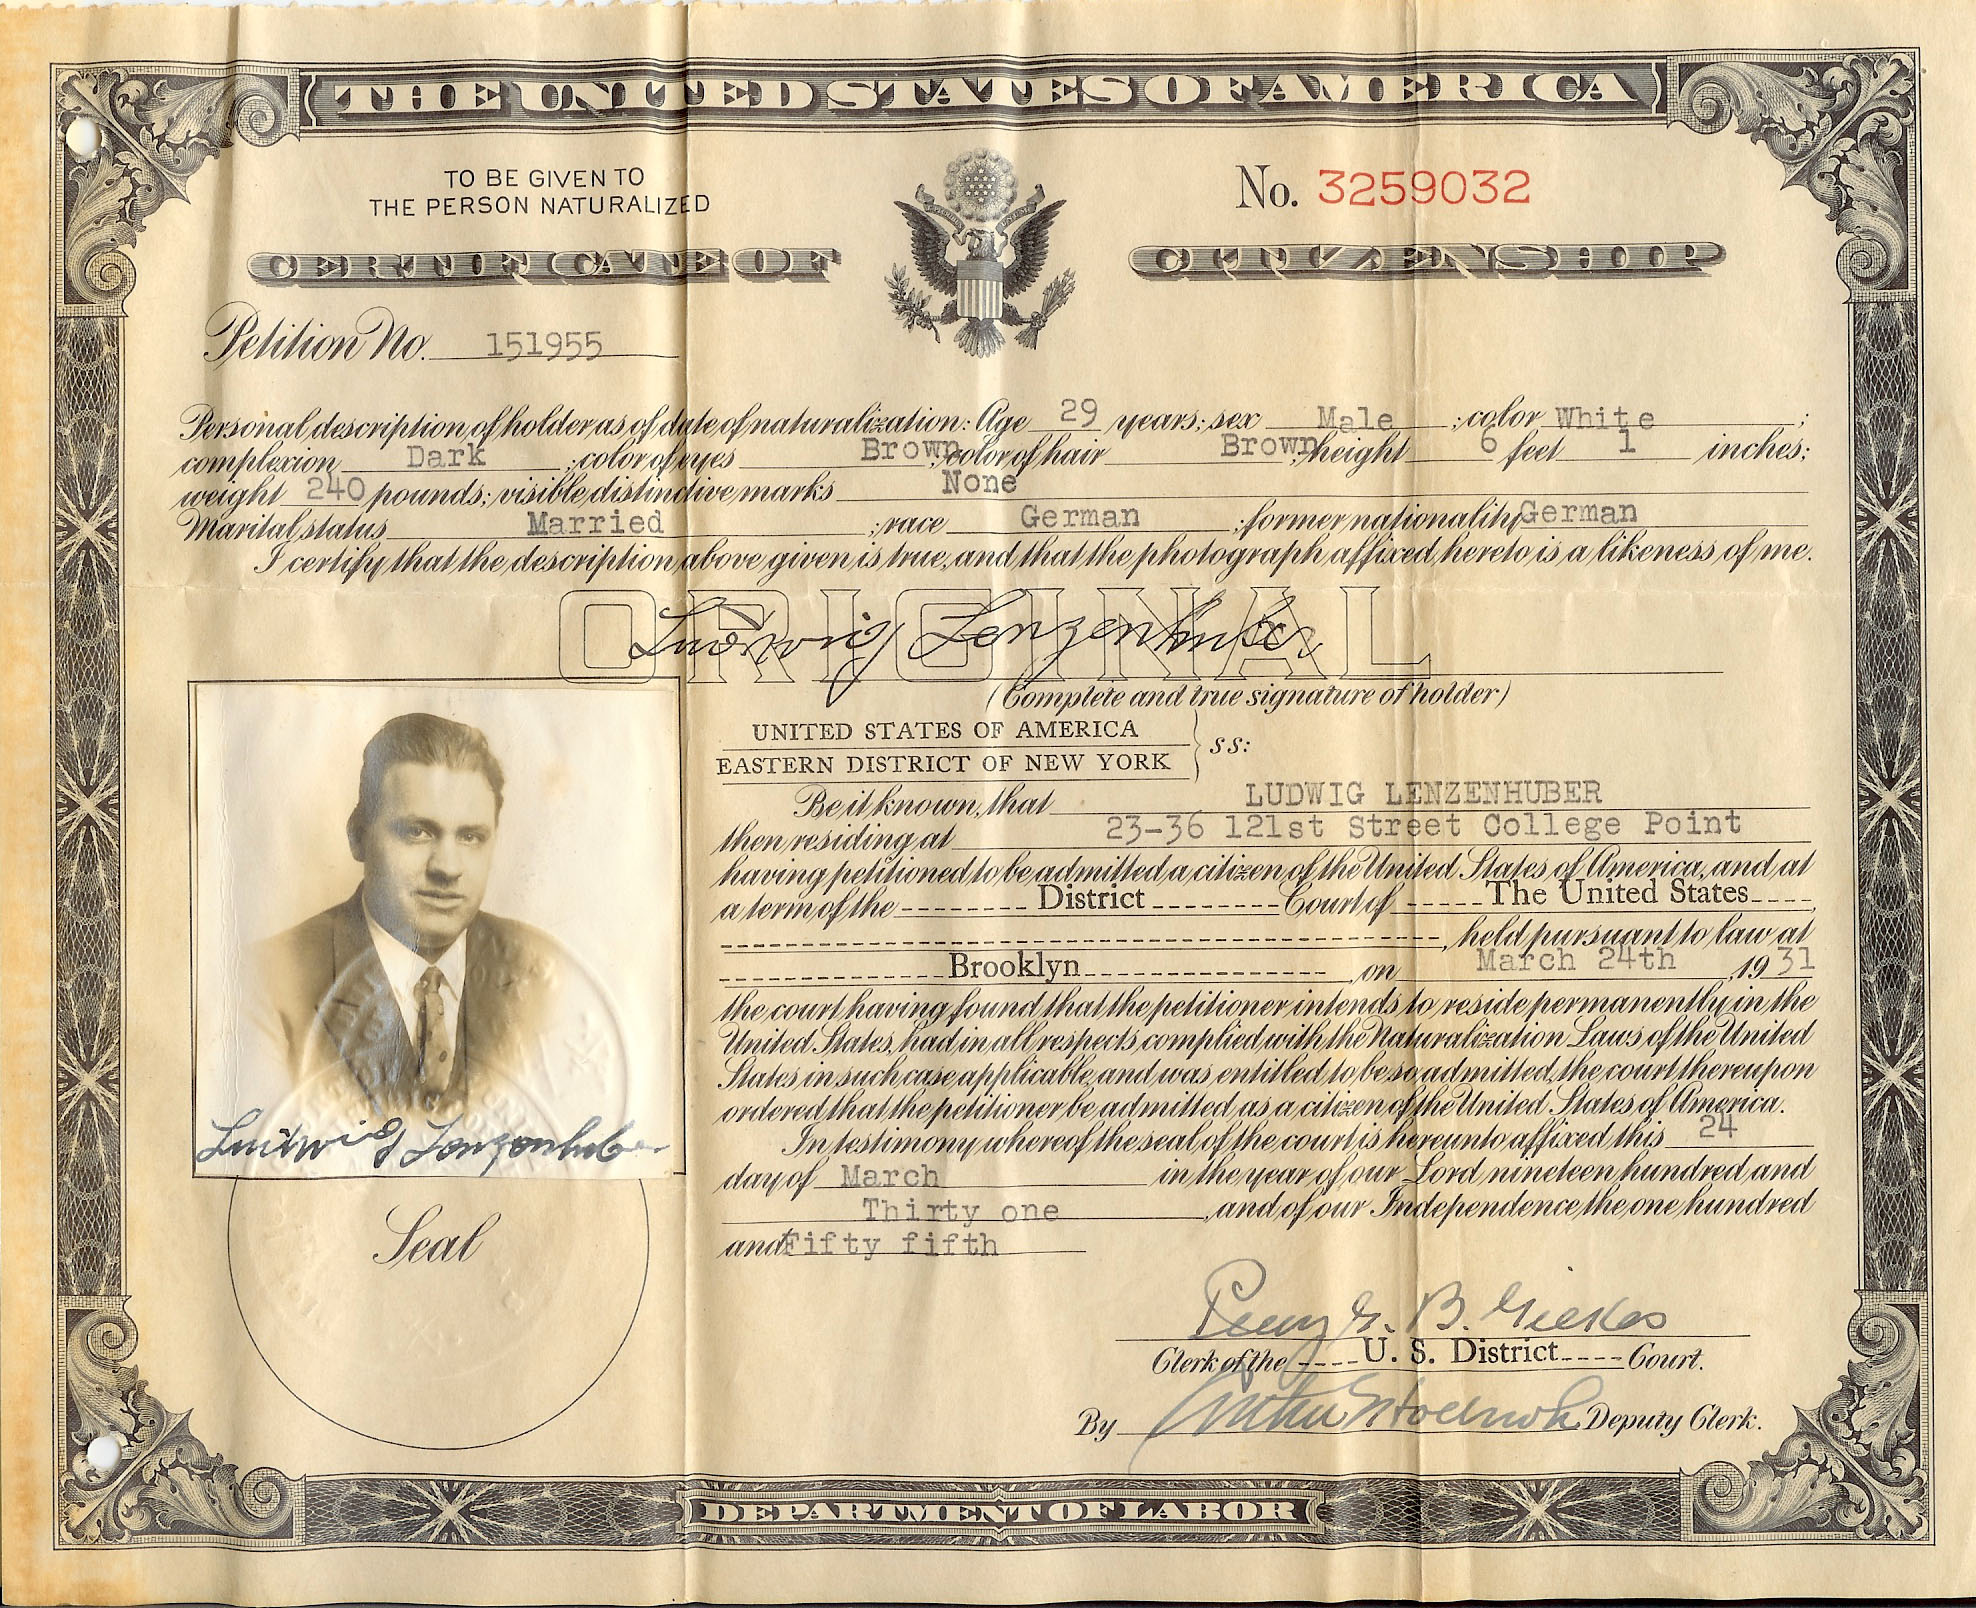 THE UNITED STATES OF AMERICA
TO BE GIVEN TO
THE PERSON NATURALIZED
No. 3259032
CERTIFICATE OF CITIZENSHIP
Petition No. 151955
Personal description of holder as of date of naturalization: Age 29 years; sex Male ; color White ;
complexion Dark ; color of eyes Brown ; color of hair Brown ; height 6 feet 1 inches;
weight 240 pounds; visible distinctive marks None
Marital status Married ; race German ; former nationality German
I certify that the description above given is true, and that the photograph affixed hereto is a likeness of me.
ORIGINAL
Ludwig Lenzenhuber
(Complete and true signature of holder)
UNITED STATES OF AMERICA
EASTERN DISTRICT OF NEW YORK } ss:
Be it known, that LUDWIG LENZENHUBER
then residing at 23-36 121st Street College Point
having petitioned to be admitted a citizen of the United States of America, and at
a term of the District Court of The United States
, held pursuant to law at
Brooklyn , on March 24th , 1931
the court having found that the petitioner intends to reside permanently in the
United States, had in all respects complied with the Naturalization Laws of the United
States in such case applicable, and was entitled to be so admitted, the court thereupon
ordered that the petitioner be admitted as a citizen of the United States of America.
In testimony whereof the seal of the court is hereunto affixed this 24
day of March in the year of our Lord nineteen hundred and
Thirty one , and of our Independence the one hundred
and Fifty fifth
Ludwig Lenzenhuber
Seal
Percy G. B. Gilkes
Clerk of the U. S. District Court.
By Deputy Clerk.
DEPARTMENT OF LABOR